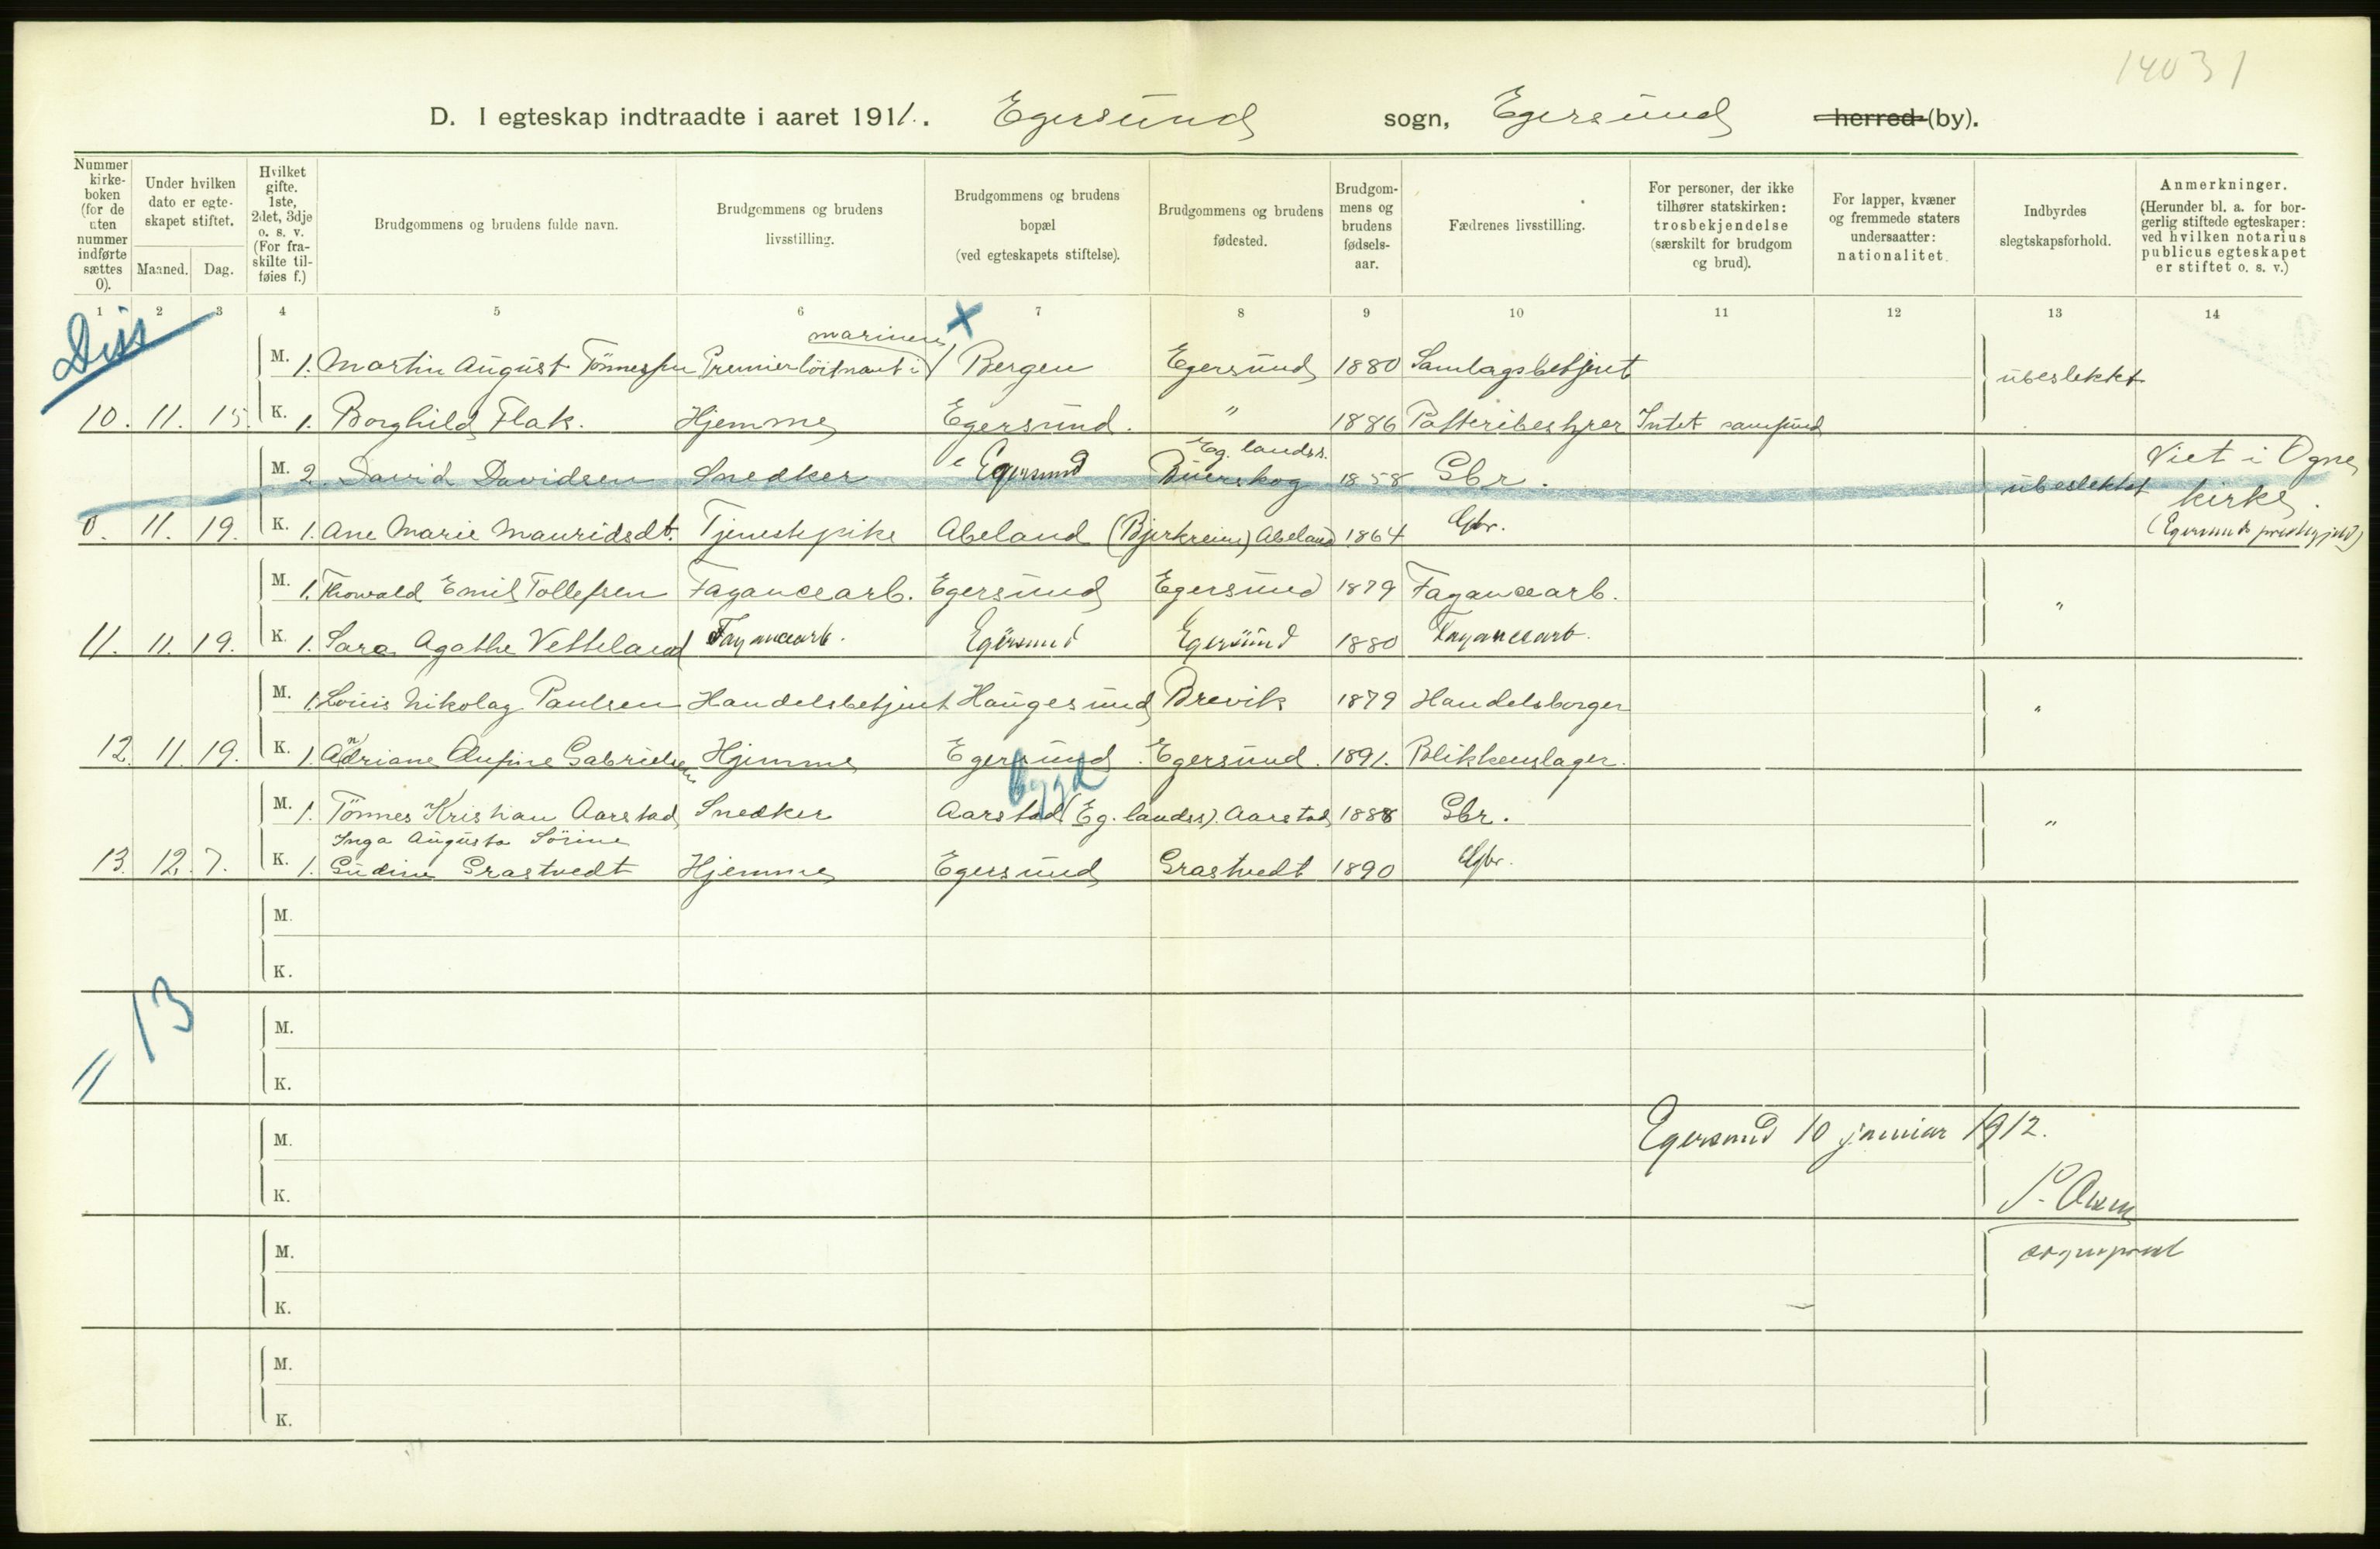 14031
D. I egteskap indtraadte i aaret 1911. Egersund sogn, Egersund herred (by).
Nummer kirkeboken (for de uten nummer indførte sættes 0).
Under hvilken dato er egteskapet stiftet.
Maaned. Dag.
Hvilket gifte. 1ste, 2det, 3dje o. s. v. (For fraskilte tilføies f.)
Brudgommens og brudens fulde navn.
Brudgommens og brudens livsstilling.
Brudgommens og brudens bopæl (ved egteskapets stiftelse).
Brudgommens og brudens fødested.
Brudgommens og brudens fødselsaar.
Fædrenes livsstilling.
For personer, der ikke tilhører statskirken: trosbekjendelse (særskilt for brudgom og brud).
For lapper, kvæner og fremmede staters undersaatter: nationalitet.
Indbyrdes slegtskapsforhold.
Anmerkninger. (Herunder bl. a. for borgerlig stiftede egteskaper: ved hvilken notarius publicus egteskapet er stiftet o. s. v.)
1 2 3 4 5 6 7 8 9 10 11 12 13 14
Diss
marinen x
M. 1. Martin August Tönnessen Premierlöitnant i Bergen Egersund 1880 Samlagsbetjent ubeslektet
10. 11. 15. K. 1. Borghild Flak. Hjemme Egersund. " 1886 Fattiribestyrer Intet samfund
Eg. landss.
M. 2. David Davidsen Snedker Egersund Buerskog 1858 Gbr. ubeslektet Viet i Ogne kirke.
0. 11. 19. K. 1. Ane Marie Mauridsdt. Tjenestepike Abeland (Bjerkreim) Abeland 1864 Gbr. (Egersunds prestegjeld)
M. 1. Thorvald Emil Tollefsen Fayancearb. Egersund Egersund 1879 Fayancearb. "
11. 11. 19. K. 1. Sara Agathe Vetteland Fayancearb. Egersund Egersund 1880 Fayancearb.
M. 1. Louis Nikolay Paulsen Handelsbetjent Haugesund Brevik 1879 Handelsborger "
12. 11. 19. K. 1. Andriane Aufine Gabrielsen Hjemme Egersund. Egersund. 1891. Blikkenslager.
bygd
M. 1. Tönnes Kristian Aarstad Snedker Aarstad (Eg. landss). Aarstad 1888 Gbr. "
Inga Augusta Sörine
13. 12. 7. K. 1. Gudine Grastvedt Hjemme Egersund Grastvedt 1890 Gbr.
M.
K.
13
M.
K.
M.
Egersund 10 januar 1912.
K.
M.
sogneprest
K.
M.
K.